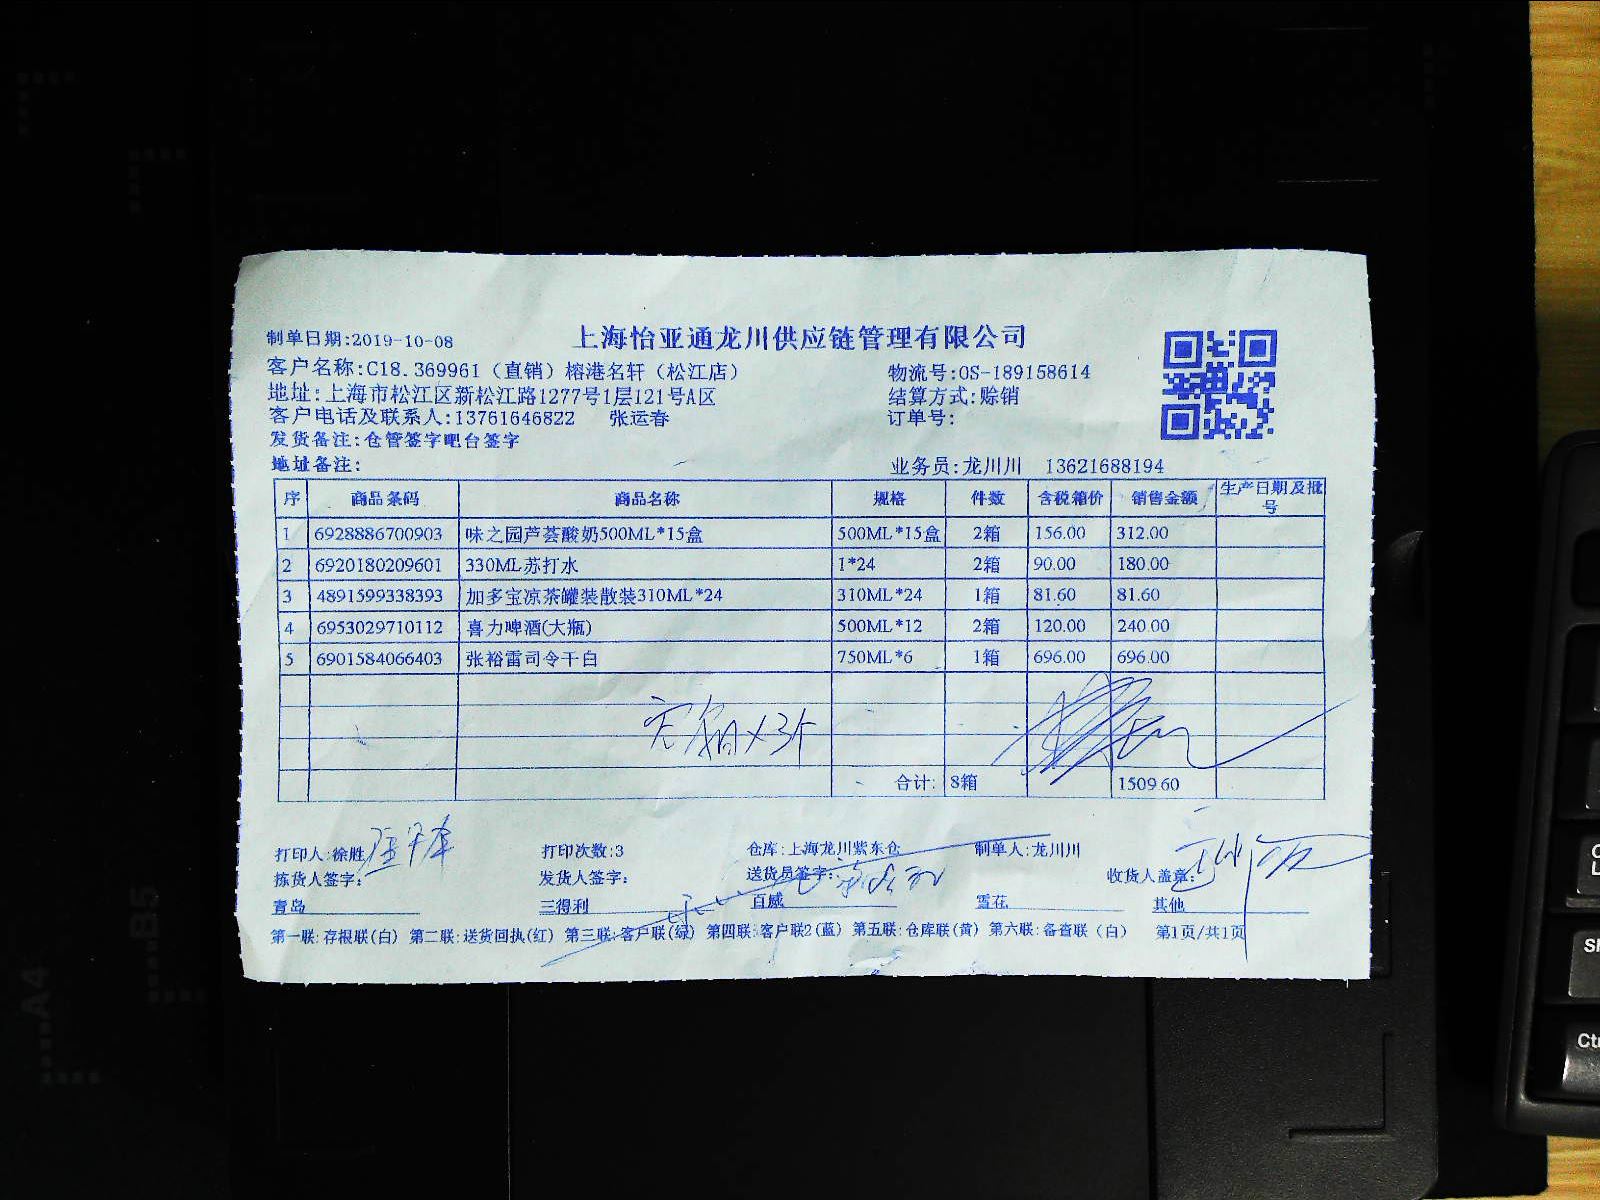 上海怡亚通龙川供应链管理有限公司
制单日期:2019-10-08
客户名称:C18.369961（直销）榕港名轩（松江店）
物流号:OS-189158614
地址:上海市松江区新松江路1277号1层121号A区
结算方式:赊销
客户电话及联系人:13761646822 张运春
订单号:
发货备注:仓管签字吧台签字
地址备注:
业务员:龙川川 13621688194
序 商品条码 商品名称 规格 件数 含税箱价 销售金额 生产日期及批号
1 6928886700903 味之园芦荟酸奶500ML*15盒 500ML*15盒 2箱 156.00 312.00
2 6920180209601 330ML苏打水 1*24 2箱 90.00 180.00
3 4891599338393 加多宝凉茶罐装散装310ML*24 310ML*24 1箱 81.60 81.60
4 6953029710112 喜力啤酒(大瓶) 500ML*12 2箱 120.00 240.00
5 6901584066403 张裕雷司令干白 750ML*6 1箱 696.00 696.00
合计: 8箱 1509.60
打印人:徐胜 打印次数:3 仓库:上海龙川紫东仓 制单人:龙川川
拣货人签字: 发货人签字: 送货员签字: 收货人盖章:
青岛 三得利 百威 雪花 其他
第一联:存根联(白) 第二联:送货回执(红) 第三联:客户联(绿) 第四联:客户联2(蓝) 第五联:仓库联(黄) 第六联:备查联（白） 第1页/共1页
B5
A4
Ctr